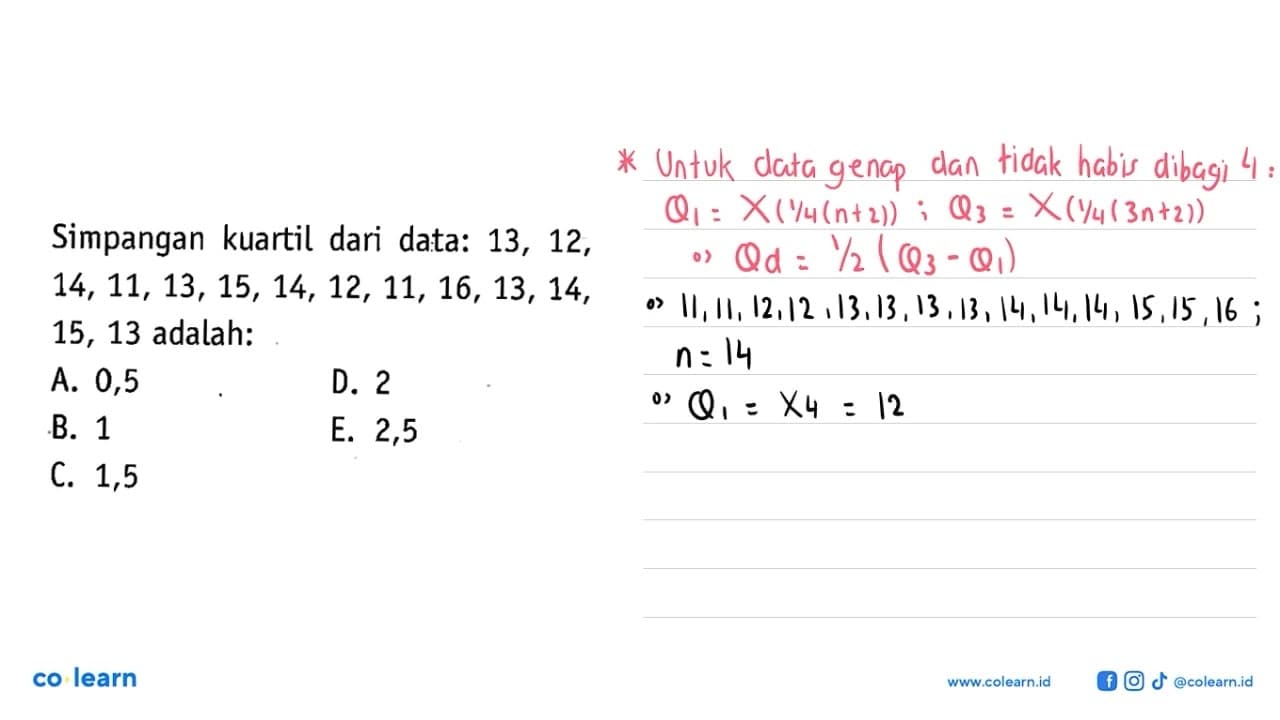 Simpangan kuartil dari data: 13, 12,
14, 11, 13, 15, 14, 12, 11, 16, 13, 14,
15, 13 adalah:
A. 0,5
D. 2
B. 1
E. 2,5
C. 1,5
* Untuk data genap dan tidak habis dibagi 4:
Q1 = X(1/4(n+2)) ; Q3 = X(1/4(3n+2))
Qd = 1/2 (Q3 - Q1)
11, 11, 12, 12, 13, 13, 13, 13, 14, 14, 14, 15, 15, 16 ;
n = 14
Q1 = X4 = 12
co learn
www.colearn.id
@colearn.id